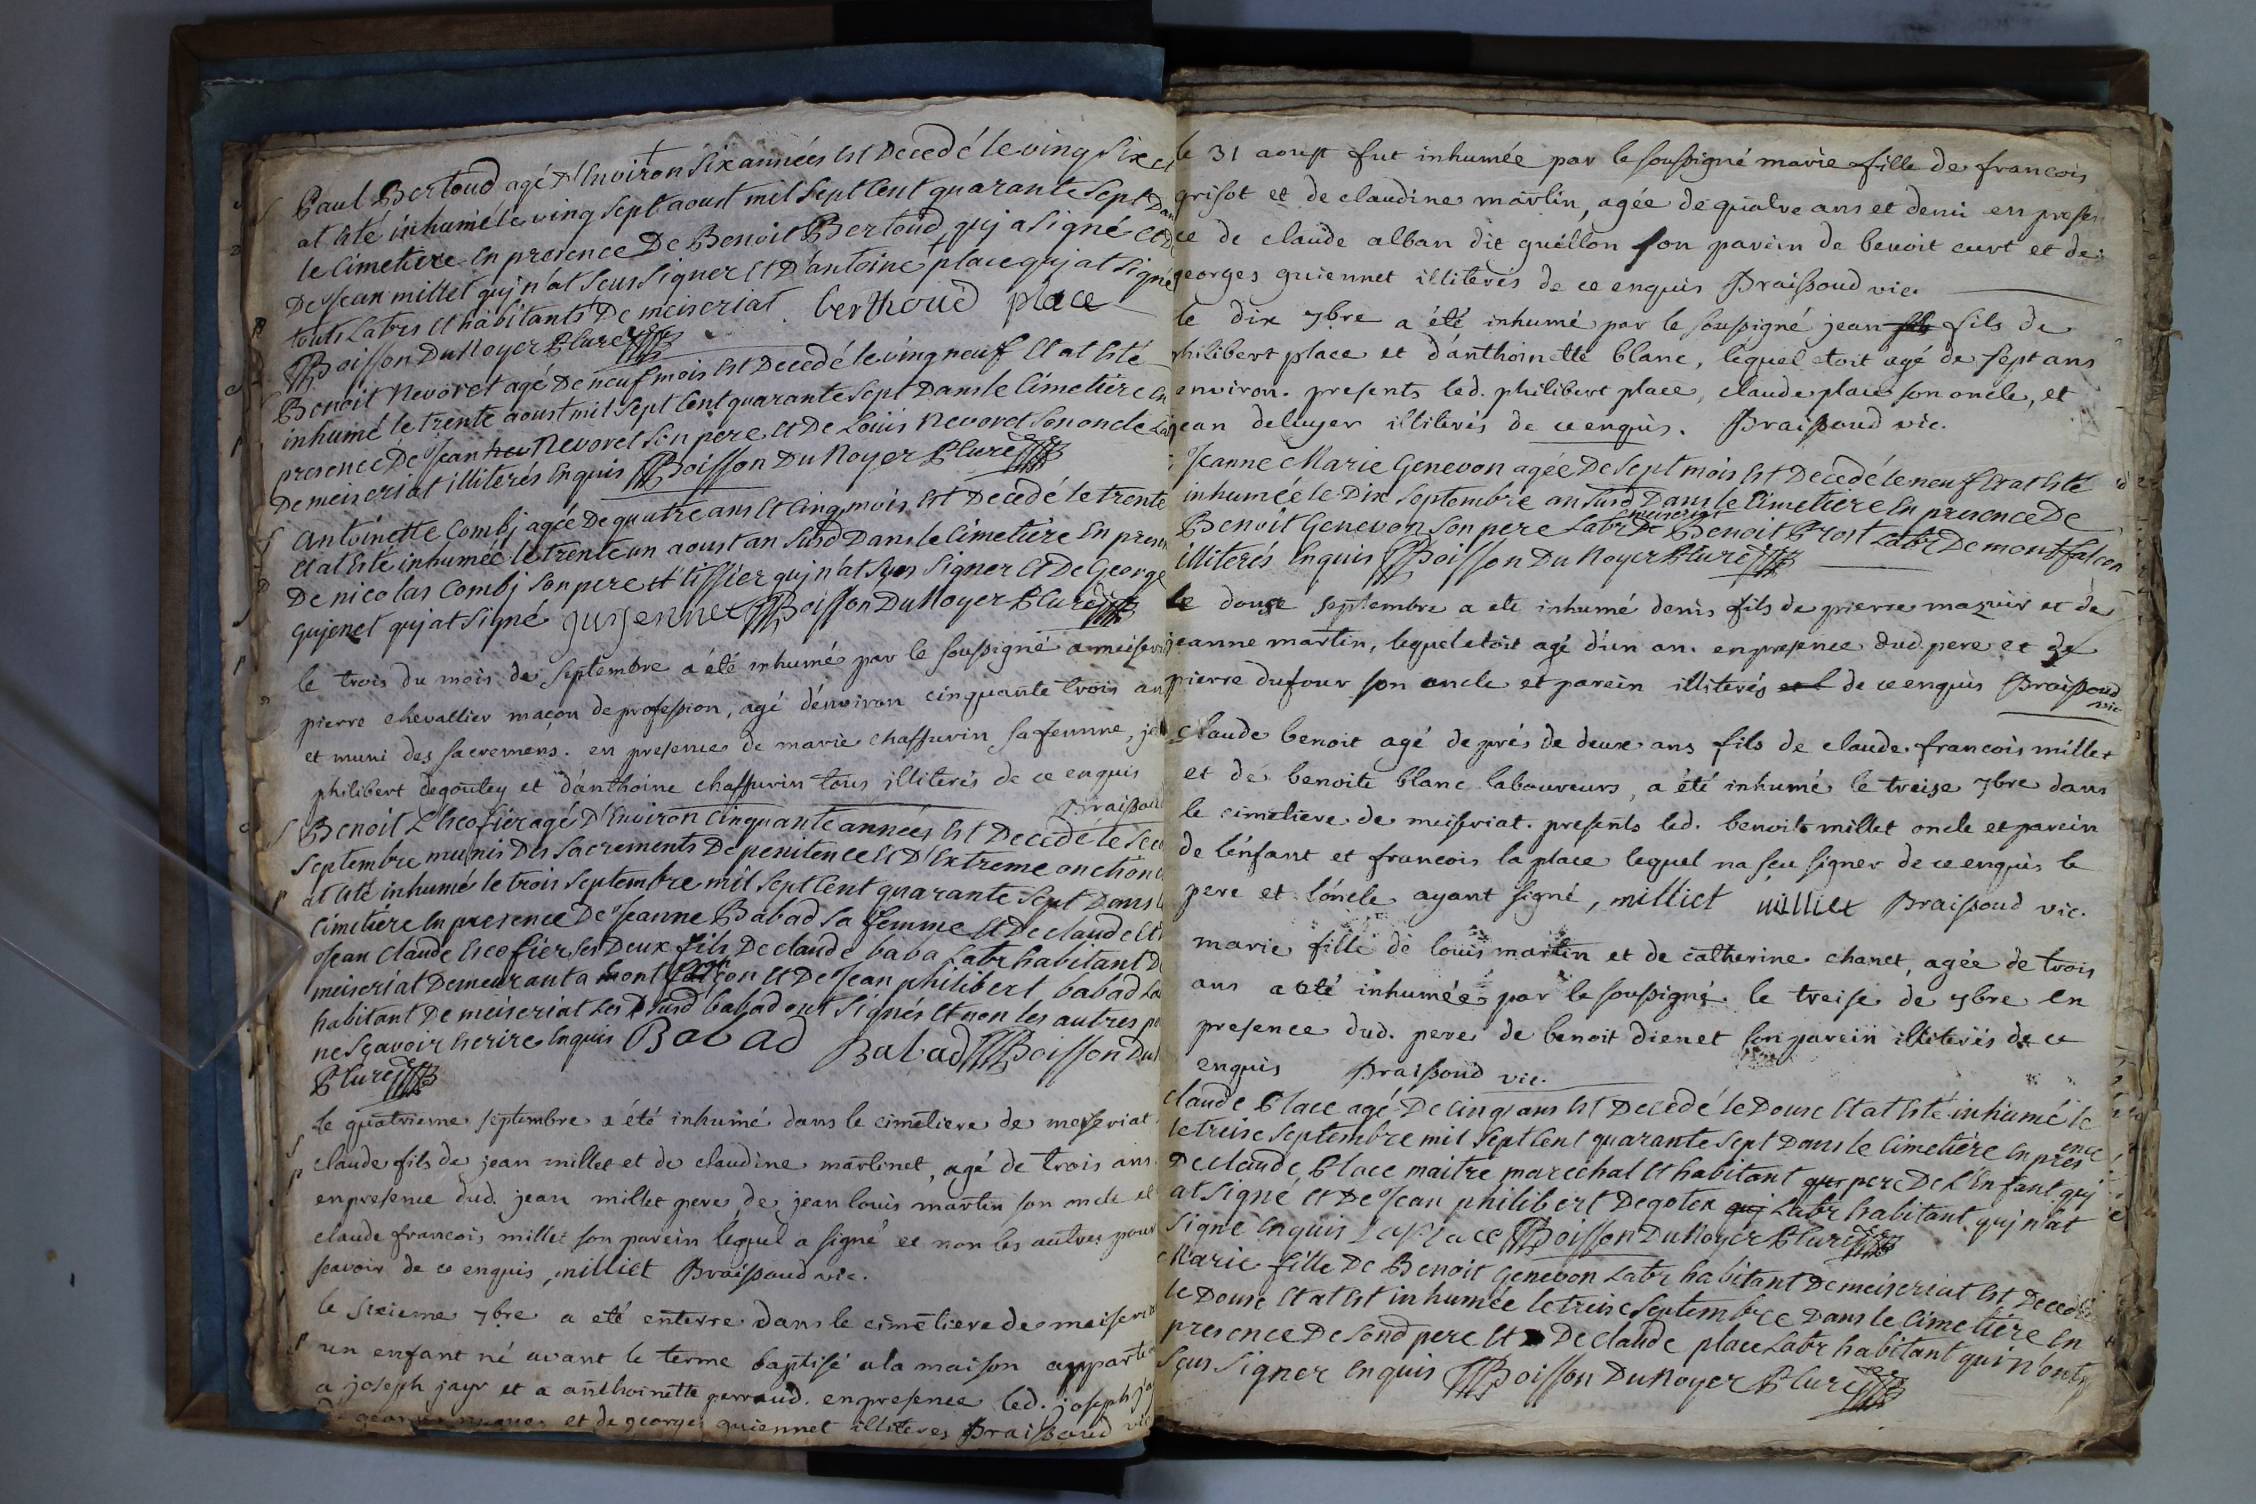 Paul Bertoud agé D'Environ Six années Est Decedé le ving Six et
at Eté inhumé le ving Sept aoust mil Sept Cent quarante Sept Dans
le Cimetiere En presence De Benoit Bertoud quj a Signé Et
De Jean millet quj n'at Sceus Signer Et D'antoine place quj at Signé
touts Labrs Et habitants De meiseriat. berthoud place
Boisson Du Noyer P Curé
Benoit Nevoret agé De neuf mois Est Decedé le ving neuf Et at Eté
inhumé le trente aoust mil Sept Cent quarante Sept Dans le Cimetiere En
presence De Jean Nevoret Son pere Et De Loüis Nevoret Son oncle
De meiseriat illiterés Enquis Boisson Du Noyer P Curé
antoinette Combj agée De quatre ans Et Cinq mois Est Decedé le trente
Et at Eté inhumée le trente un aoust an Susd Dans le Cimetiere En
De nicolas Combj Son pere Et tissier quj n'at Sçus Signer Et De George
Gujenet quj at Signé gujennet Boisson Du Noyer P Curé
le trois du mois de Septembre a été inhumé par le soussigné a
pierre chevallier maçon de profession, agé d'environ cinquante trois ans
et muni des sacremens. en presence de marie chassurin sa femme,
philibert degoutey et d'anthoine chassurin tous illiterés de ce enquis
Braissoud
Benoit L'hcofier agé D'Environ Cinquante années Est Decedé le
Septembre munis Des Sacrements De penitence Et D'Extreme onction
at Eté inhumé le trois Septembre mil Sept Cent quarante Sept Dans
Cimetiere En presence De Jeanne Babad Sa femme Et De Claude Et
Jean Claude Ecofier Ses Deux fils De Claude baba Labr habitant
meiseriat Demeurant a Et De Jean philibert babad
habitant De meiseriat Les D Susd babad ont Signés Et non les autres
ne Sçavoir Ecrire Enquis Babad Babad Boisson Du
P Curé
Le quatrieme septembre a été inhumé dans le cimetiere de meyseriat
claude fils de jean millet et de claudine martinet, agé de trois ans
en presence dud. jean millet pere, de jean louis martin son oncle et
claude francois millet son parein lequel a signé et non les autres pour
scavoir de ce enquis, milliet Braissoud vic.
le sixieme 7bre a eté enterre dans le cimetiere de
un enfant né avant le terme baptisé a la maison
a joseph jayr et a anthoinette perraud. en presence led. joseph
et de georges guiennet illiteres Braissoud
le 31 aoust fut inhumée par le soussigné marie fille de francois
grisot et de claudine martin, agée de quatre ans et demi en presen
ce de claude alban dit guéllon son parein de benoit curt et de
georges guiennet illiterés de ce enquis Braissoud vic.
le dix 7bre a été inhumé par le soussigné jean fils de
philibert place et d'anthoinette blanc, lequel etoit agé de sept ans
environ. presents led. philibert place, claude place son oncle, et
jean deluyer illiterés de ce enquis. Braissoud vic.
Jeanne Marie Genevon agée De Sept mois Est Decedé le neuf Et at Eté
inhumée le Dix Septembre an Susd Dans le Cimetiere En presence De
Benoit Genevon Son pere Labr De meiseriat Benoit Prost Labr De montfalcon
illiterés Enquis Boisson Du Noyer P Curé
le douse septembre a eté inhumé denis fils de pierre mazuir et de
jeanne martin, lequel etoit agé d'un an. en presence dud. pere et de
pierre dufour son oncle et parein illiterés de ce enquis Braissoud
vic
claude benoit agé de prés de deux ans fils de claude francois millet
et de benoite blanc laboureurs, a été inhumé le treise 7bre dans
le cimetiere de meiseriat. presents led. benoit millet oncle et parein
de l'enfant et francois la place lequel na seu signer de ce enquis le
pere et l'oncle ayant signé, milliet milliet Braissoud vic.
marie fille de louis martin et de catherine chanet, agée de trois
ans a eté inhumée par le soussigné le treise de 7bre en
presence dud. pere de benoit dienet son parein illiterés de ce
enquis Braissoud vic.
Claude Place agé De Cinq ans Est Decedé le Douse Et at Eté inhumé le
le treise Septembre mil Sept Cent quarante Sept Dans le Cimetiere En presence
De Claude Place maitre marechal Et habitant pere De L'Enfant quj
at Signé Et De Jean philibert Degotex Labr habitant quj n'at
Signé Enquis La Place Boisson Du Noyer P Curé
Marie fille De Benoit Genevon Labr habitant De meiseriat Est Decedée
le Douse Et at Est inhumée le treise Septembre Dans le Cimetiere En
presence De Sond pere Et De Claude place Labr habitant qui n'ont
Sçus Signer Enquis Boisson Du Noyer P Curé